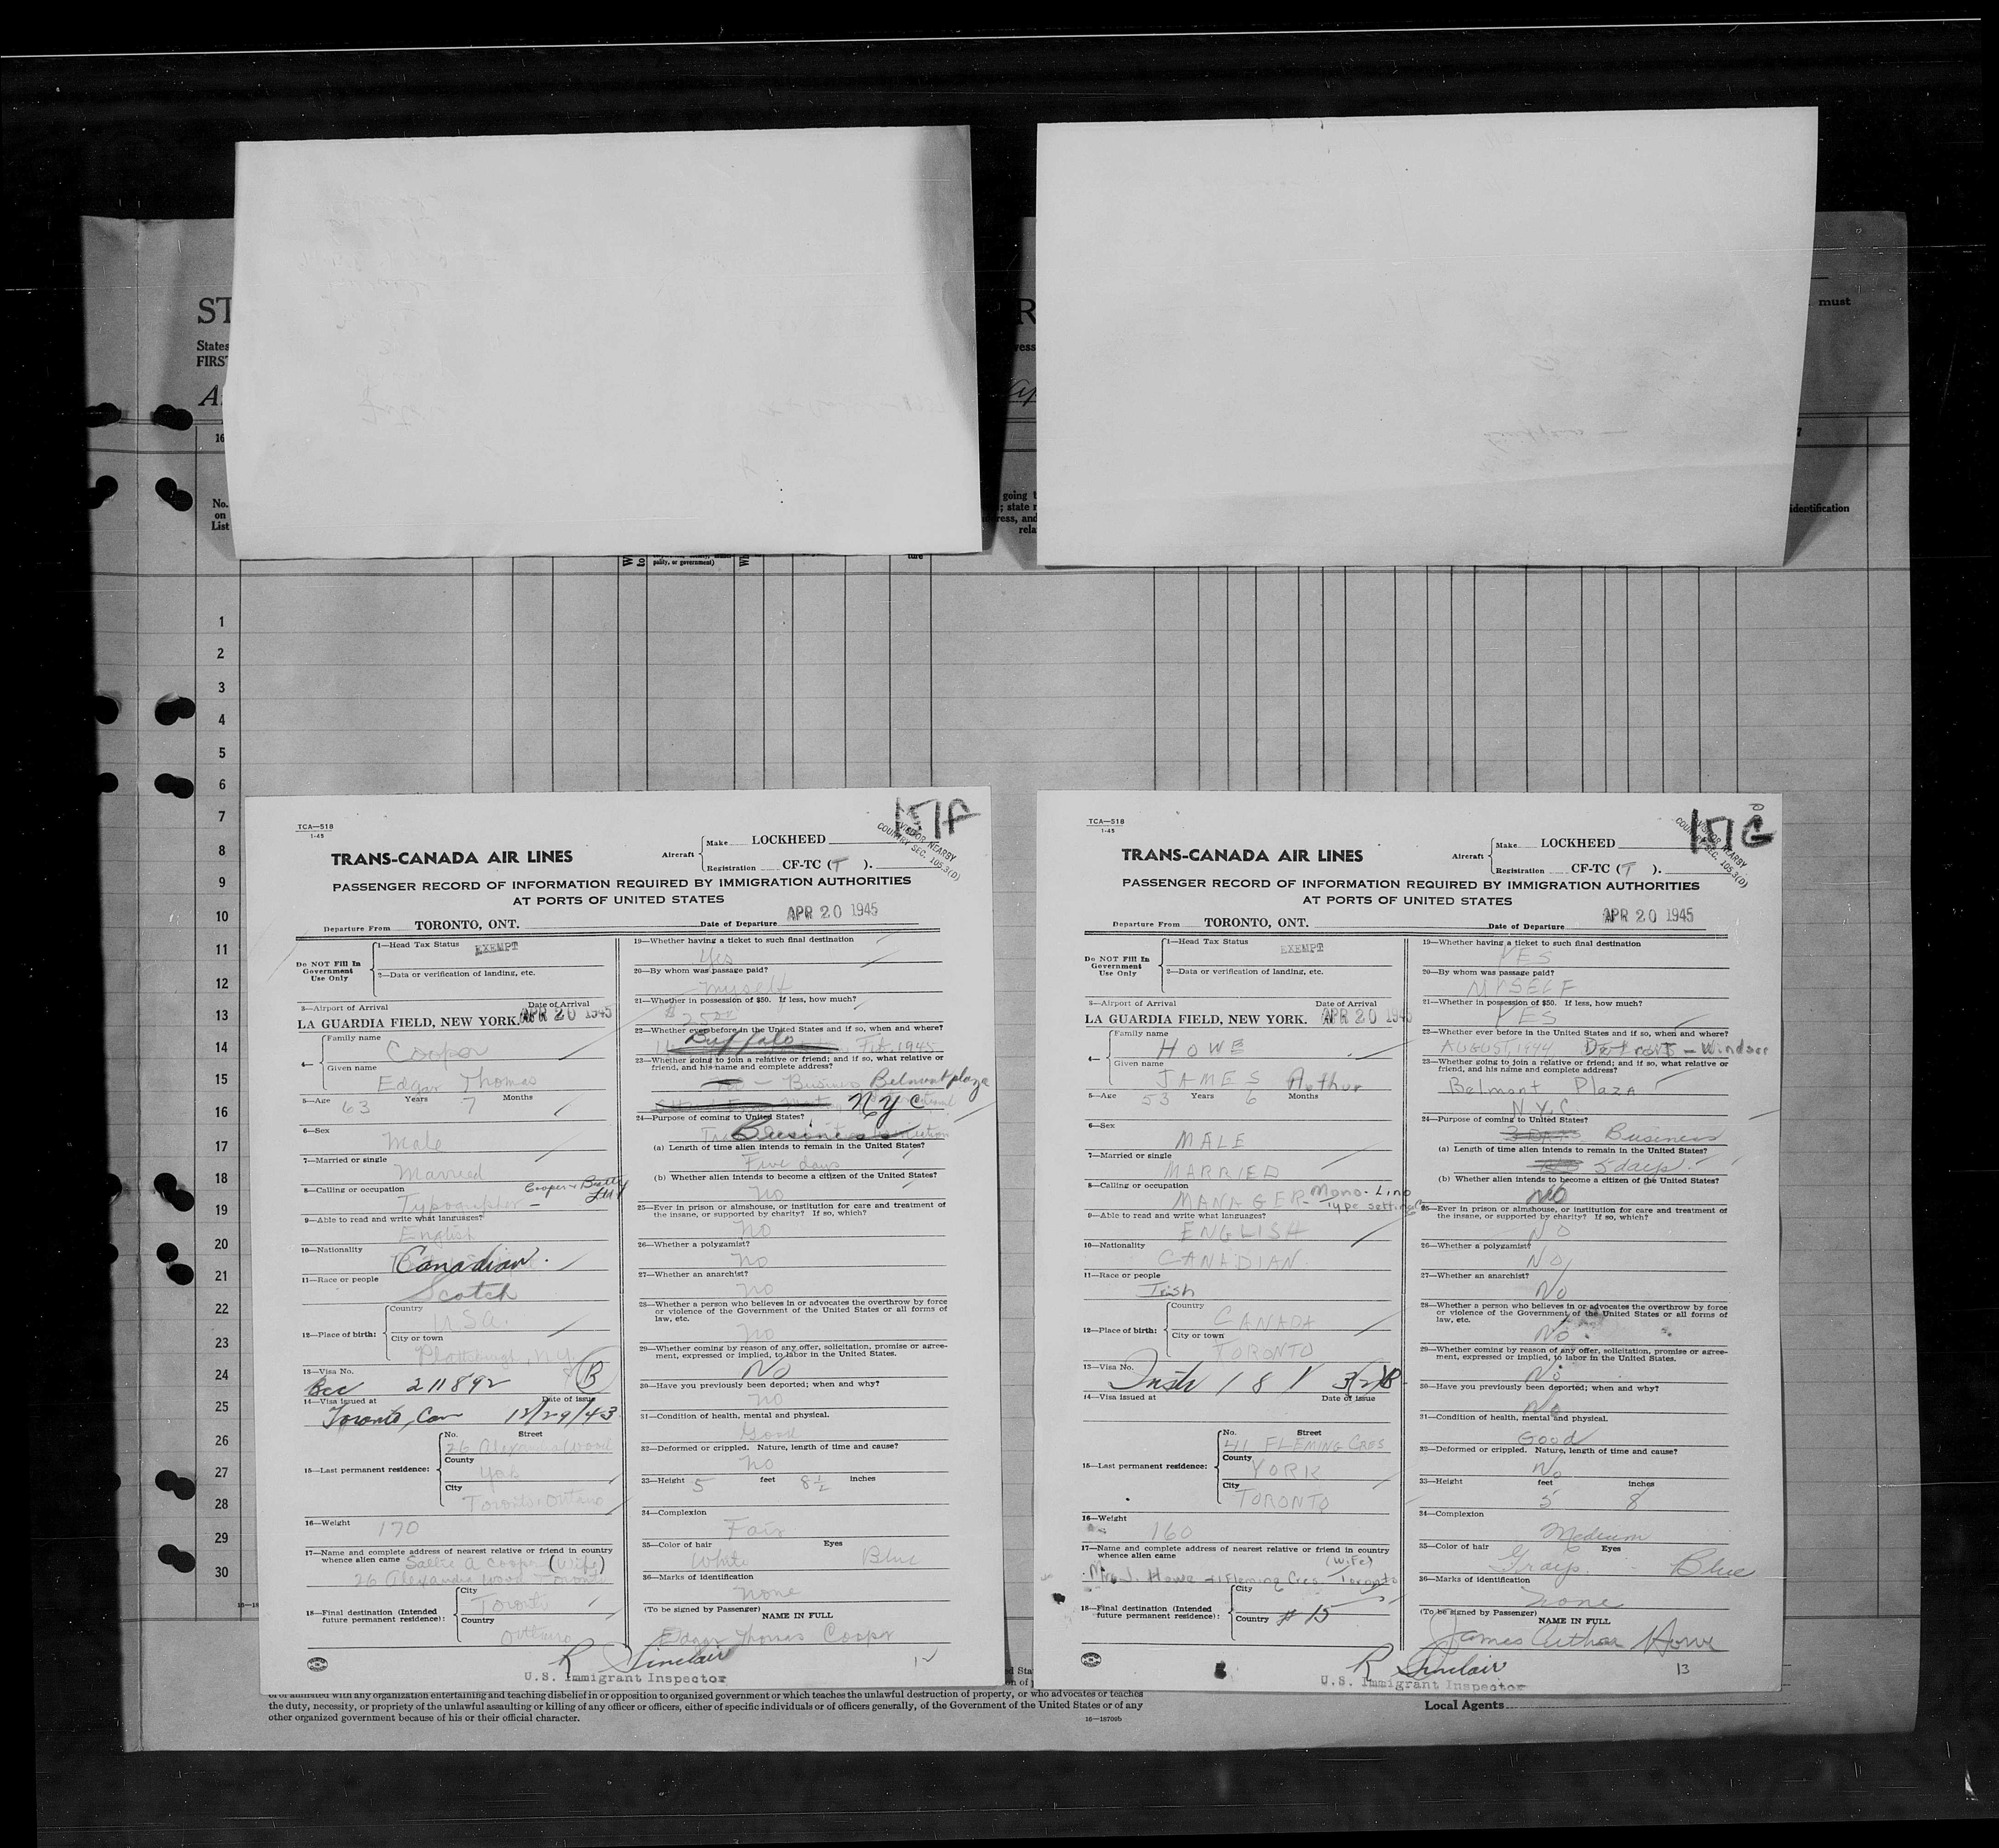 must
States
FIRS
16
No.
on
List
going t
; state r
ress, and
rela
identification
pality, or government)
ture
1
2
3
4
5
6
7
8
9
10
11
12
13
14
15
16
17
18
19
20
21
22
23
24
25
26
27
28
29
30
TCA—518
1-45
151A
VISITOR NEARBY
COUNTRY SEC. 105.3(D)
TRANS-CANADA AIR LINES
Aircraft Make LOCKHEED
Registration CF-TC (T).
PASSENGER RECORD OF INFORMATION REQUIRED BY IMMIGRATION AUTHORITIES
AT PORTS OF UNITED STATES
Departure From TORONTO, ONT. Date of Departure APR 20 1945
Do NOT Fill In Government Use Only
1—Head Tax Status EXEMPT
2—Data or verification of landing, etc.
3—Airport of Arrival Date of Arrival
LA GUARDIA FIELD, NEW YORK. APR 20 1945
4— Family name Cooper
Given name Edgar Thomas
5—Age 63 Years 7 Months
6—Sex
Male
7—Married or single
Married
8—Calling or occupation Cooper & Beatty Ltd
Typographer —
9—Able to read and write what languages?
English
10—Nationality
Canadian.
11—Race or people
Scotch
12—Place of birth: Country U.S.A.
City or town
Plattsburgh, N.Y.
13—Visa No. B
Bcc 211892
14—Visa issued at Date of issue
Toronto, Can 12/29/43
15—Last permanent residence: No. Street
26 Alexandra Wood
County
York
City
Toronto Ontario
16—Weight 170
17—Name and complete address of nearest relative or friend in country
whence alien came Sallie A Cooper (Wife)
26 Alexandra Wood Toronto
18—Final destination (Intended future permanent residence): City
Toronto
Country
Ontario
19—Whether having a ticket to such final destination
Yes
20—By whom was passage paid?
Myself
21—Whether in possession of $50. If less, how much?
22—Whether ever before in the United States and if so, when and where?
Buffalo Feb 1945
23—Whether going to join a relative or friend; and if so, what relative or
friend, and his name and complete address?
— Business Belmont plaza
N Y C
24—Purpose of coming to United States?
Business
(a) Length of time alien intends to remain in the United States?
Five days
(b) Whether alien intends to become a citizen of the United States?
No
25—Ever in prison or almshouse, or institution for care and treatment of
the insane, or supported by charity? If so, which?
No
26—Whether a polygamist?
No
27—Whether an anarchist?
No
28—Whether a person who believes in or advocates the overthrow by force
or violence of the Government of the United States or all forms of
law, etc.
No
29—Whether coming by reason of any offer, solicitation, promise or agree-
ment, expressed or implied, to labor in the United States.
No
30—Have you previously been deported; when and why?
No
31—Condition of health, mental and physical.
Good
32—Deformed or crippled. Nature, length of time and cause?
No
33—Height 5 feet 8½ inches
34—Complexion
Fair
35—Color of hair Eyes
White Blue
36—Marks of identification
None
(To be signed by Passenger)
NAME IN FULL
Edgar Thomas Cooper
R Sinclair 12
U.S. Immigrant Inspector
TCA—518
1-45
151G
VISITOR NEARBY
COUNTRY SEC. 105.3(D)
TRANS-CANADA AIR LINES
Aircraft Make LOCKHEED
Registration CF-TC (T).
PASSENGER RECORD OF INFORMATION REQUIRED BY IMMIGRATION AUTHORITIES
AT PORTS OF UNITED STATES
Departure From TORONTO, ONT. Date of Departure APR 20 1945
Do NOT Fill In Government Use Only
1—Head Tax Status EXEMPT
2—Data or verification of landing, etc.
3—Airport of Arrival Date of Arrival
LA GUARDIA FIELD, NEW YORK. APR 20 1945
4— Family name HOWE
Given name
JAMES Arthur
5—Age 53 Years 6 Months
6—Sex
MALE
7—Married or single
MARRIED
8—Calling or occupation
MANAGER — Mono-Lino Type setting Co
9—Able to read and write what languages?
ENGLISH
10—Nationality
CANADIAN.
11—Race or people
Irish
12—Place of birth: Country
CANADA
City or town
TORONTO
13—Visa No.
14—Visa issued at Date of issue
15—Last permanent residence: No. Street
41 FLEMING CRES
County
YORK
City
TORONTO
16—Weight
160
17—Name and complete address of nearest relative or friend in country
whence alien came (Wife)
Mrs J. Howe 41 Fleming Cres — Toronto
18—Final destination (Intended future permanent residence): City
Country # 15
19—Whether having a ticket to such final destination
YES
20—By whom was passage paid?
MYSELF
21—Whether in possession of $50. If less, how much?
YES
22—Whether ever before in the United States and if so, when and where?
AUGUST 1944 Detroit — Windsor
23—Whether going to join a relative or friend; and if so, what relative or
friend, and his name and complete address?
Belmont Plaza
N.Y.C.
24—Purpose of coming to United States?
3 DAYS Business
(a) Length of time alien intends to remain in the United States?
5 days.
(b) Whether alien intends to become a citizen of the United States?
No
25—Ever in prison or almshouse, or institution for care and treatment of
the insane, or supported by charity? If so, which?
NO
26—Whether a polygamist?
NO
27—Whether an anarchist?
No
28—Whether a person who believes in or advocates the overthrow by force
or violence of the Government of the United States or all forms of
law, etc.
No.
29—Whether coming by reason of any offer, solicitation, promise or agree-
ment, expressed or implied, to labor in the United States.
No
30—Have you previously been deported; when and why?
No
31—Condition of health, mental and physical.
Good
32—Deformed or crippled. Nature, length of time and cause?
No
33—Height 5 feet 8 inches
34—Complexion
Medium
35—Color of hair Eyes
Gray. Blue
36—Marks of identification
None
(To be signed by Passenger)
NAME IN FULL
James Arthur Howe
R Sinclair 13
U.S. Immigrant Inspector
or affiliated with any organization entertaining and teaching disbelief in or opposition to organized government or which teaches the unlawful destruction of property, or who advocates or teaches
the duty, necessity, or propriety of the unlawful assaulting or killing of any officer or officers, either of specific individuals or of officers generally, of the Government of the United States or of any
other organized government because of his or their official character.
16—18709b
Local Agents